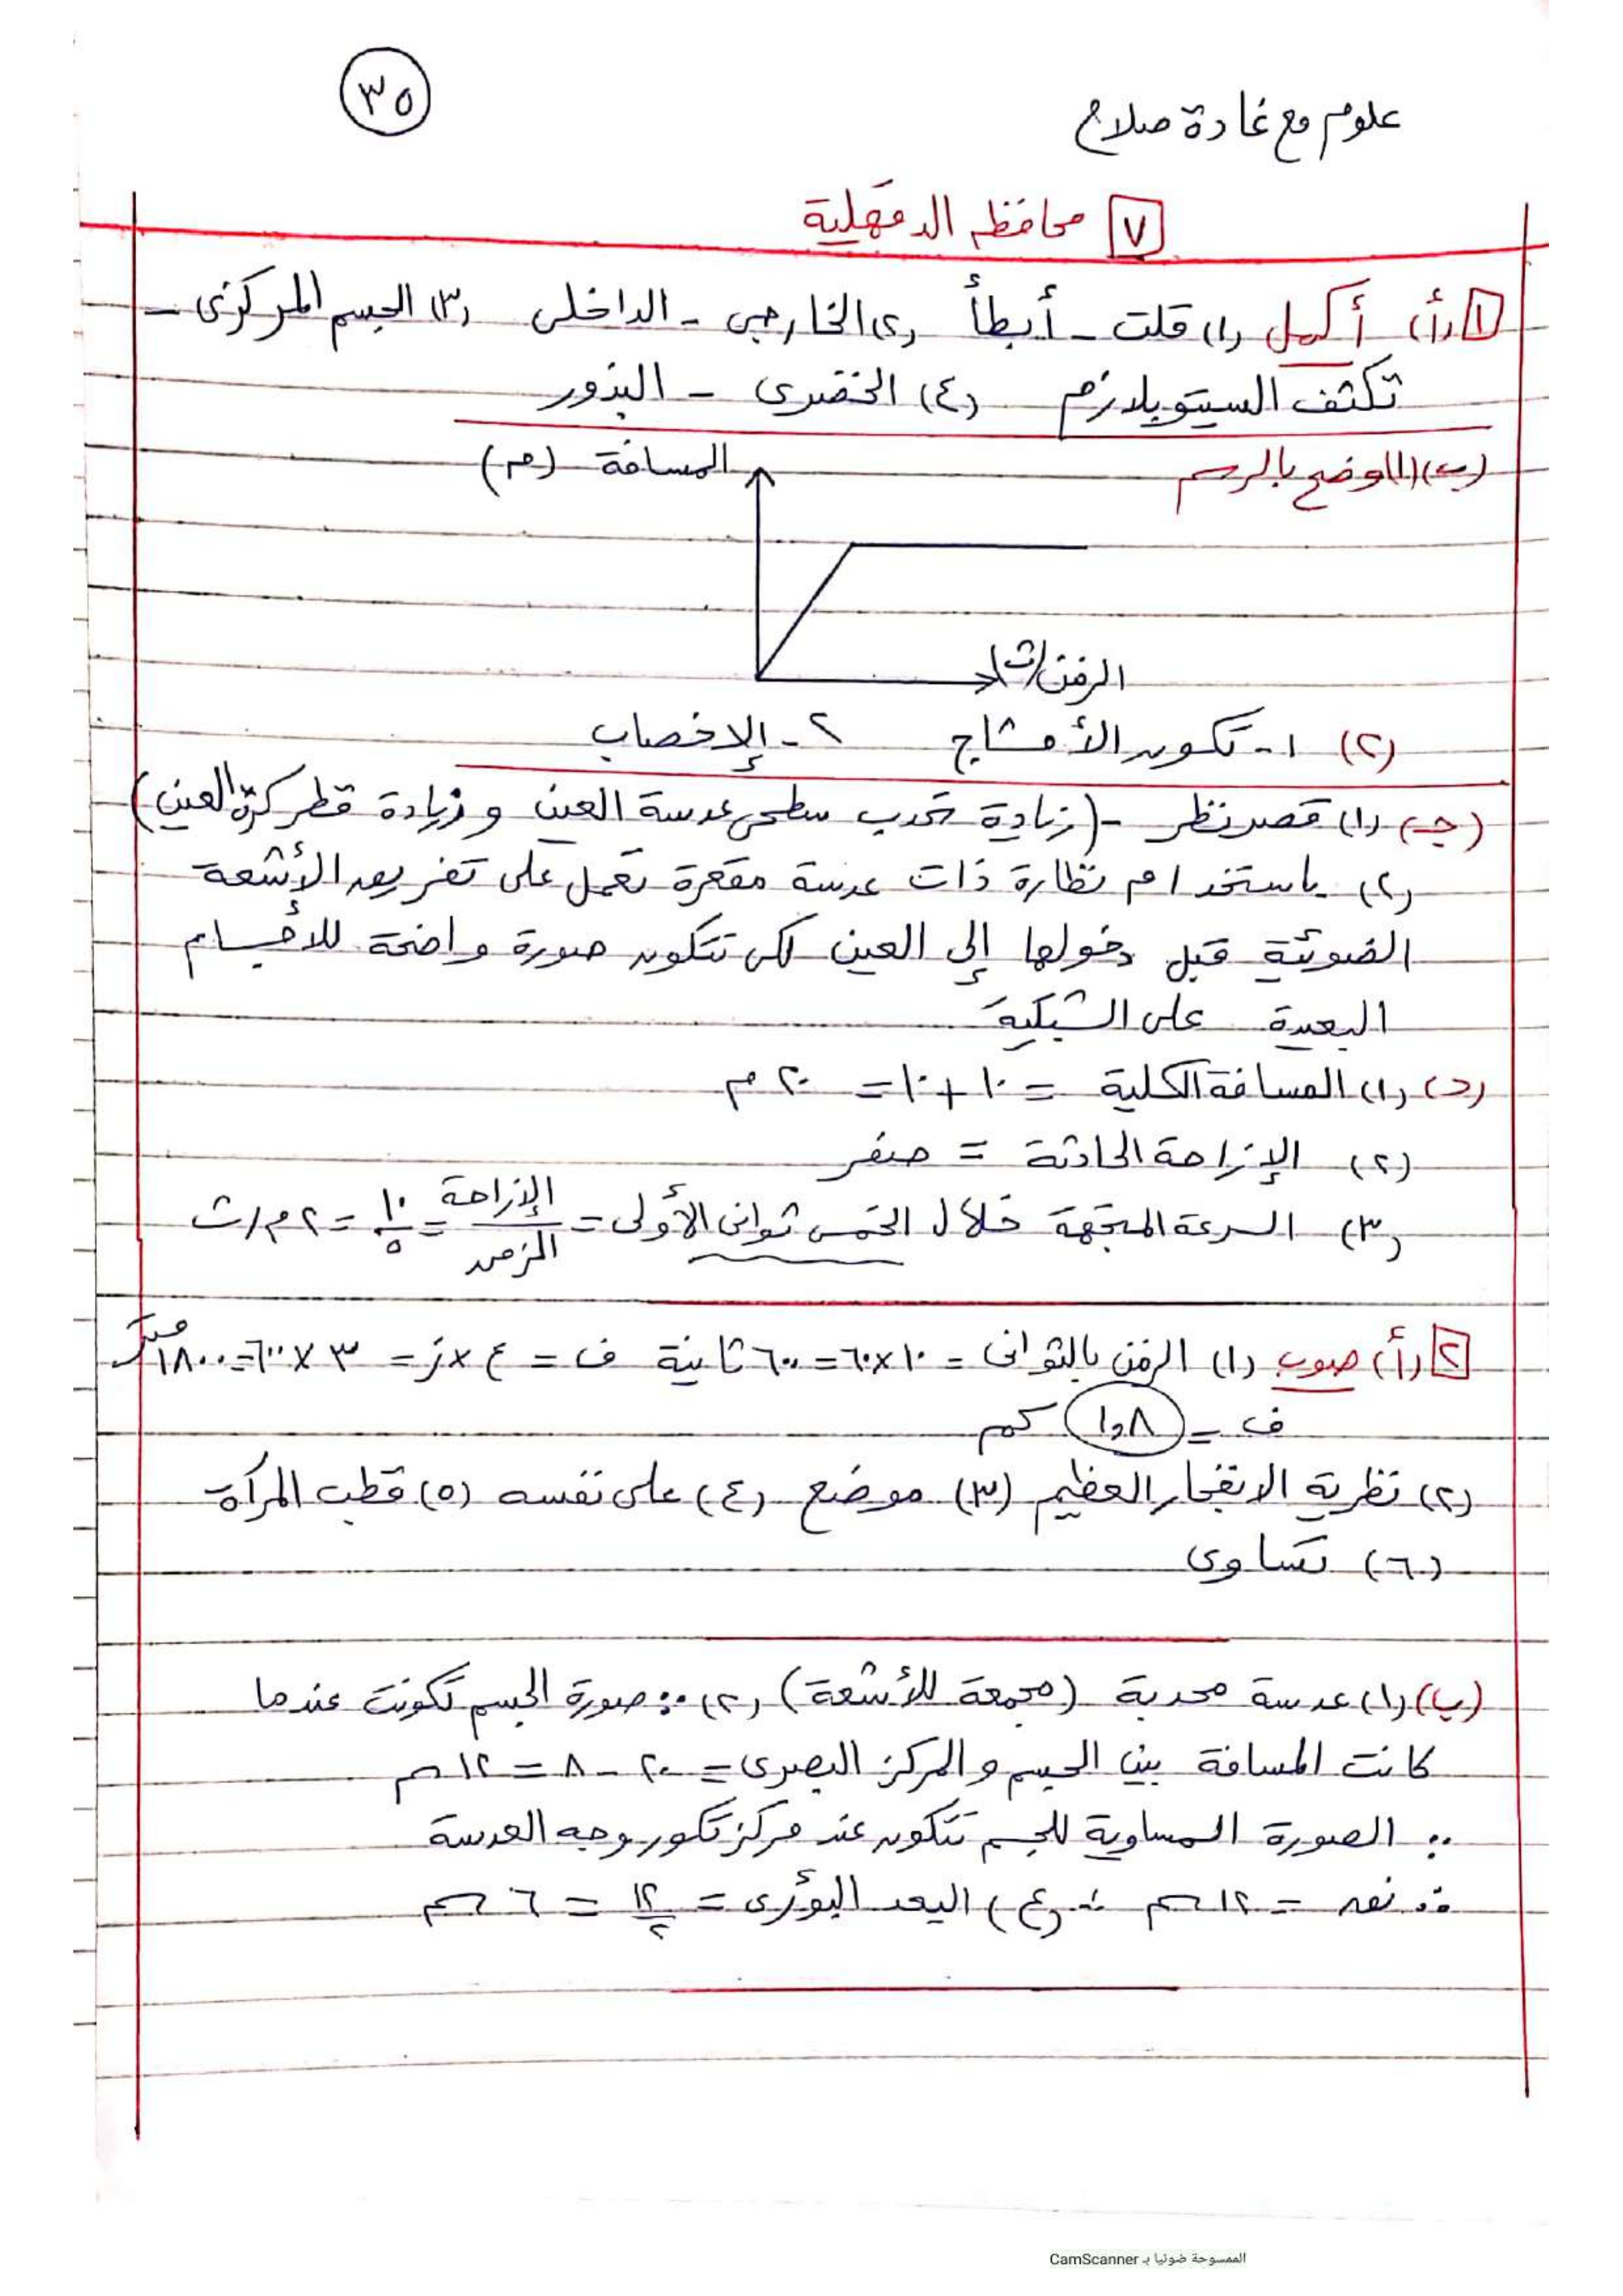 ٣٥
علوم مع غادة صلاح
٧ محافظة الدقهلية
١ (أ) أكمل (١) قلت - أبطأ (٢) الخارجى - الداخلى (٣) الجسم المركزى -
تكثف السيتوبلازم (٤) الخضرى - البذور
(ب) (١) وضح بالرسم
المسافة (م)
الزمن (ث)
(٢) ١- تكوين الأمشاج ٢- الإخصاب
(جـ) (١) قصر نظر - (زيادة تحدب سطحى عدسة العين وزيادة قطر كرة العين)
(٢) باستخدام نظارة ذات عدسة مقعرة تعمل على تفريق الأشعة
الضوئية قبل دخولها إلى العين لكى تتكون صورة واضحة للأجسام
البعيدة على الشبكية
(د) (١) المسافة الكلية = ١٠ + ١٠ = ٢٠ م
(٢) الإزاحة الحادثة = صفر
(٣) السرعة المتجهة خلال الخمس ثوانى الأولى = الإزاحة / الزمن = ١٠ / ٥ = ٢ م/ث
٢ (أ) صوب (١) الزمن بالثوانى = ١٠ × ٦٠ = ٦٠٠ ثانية ف = ع × ز = ٣ × ٦٠٠ = ١٨٠٠ متر
ف = ١,٨ كم
(٢) نظرية الانفجار العظيم (٣) موضع (٤) على نفسه (٥) قطب المرآة
(٦) تساوى
(ب) (١) عدسة محدبة (مجمعة للأشعة) (٢) ∵ صورة الجسم تكونت عندما
كانت المسافة بين الجسم والمركز البصرى = ٢٠ - ٨ = ١٢ سم
∵ الصورة المساوية للجسم تتكون عند مركز تكور وجه العدسة
∴ نق = ١٢ سم ∴ (ع) البعد البؤرى = ١٢ / ٢ = ٦ سم
الممسوحة ضوئيا بـ CamScanner